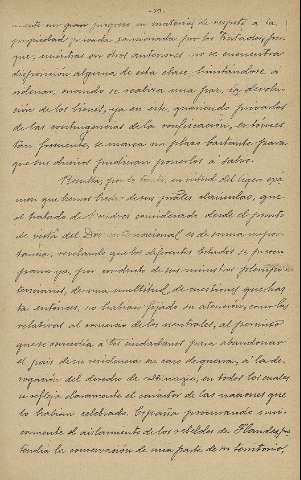 -50-
un gran progreso en materias de respeto a la
propiedad privada sancionada por los Tratados, por
que, mientras en otros anteriores no se encuentra
disposición alguna de esta clase, limitándose a
ordenar, cuando se realiza una paz, la devolu-
ción de los bienes, ya en este, queriendo privarlos
de las contingencias de la confiscación, en tiempos
tan, se marca un plazo bastante para
que sus dueños pudieran ponerlos á salvo.
Resulta, por lo tanto, en virtud del ligero exá
men que hemos hecho de sus cláusulas, que
el tratado de considerado desde el punto
de vista del Internacional es de suma impor-
tancia, revelando que los diferentes Estados se preocu
paron ya, por conducto de sus ministros plenipo
tenciarios, de una multitud de cuestiones que has
ta entonces, no habian fijado su atención, como las
relativas al comercio de los neutrales, al permiso
que se concedia a los ciudadanos para abandonar
el pais de su residencia en caso de guerra, á la de-
rogación del derecho de naufragio, en todos los cuales
se refleja claramente el caracter de las naciones que
lo habian celebrado. España procurando
el aislamiento de los rebeldes de Flandes,
tendia la conservación de una parte de su territorio,